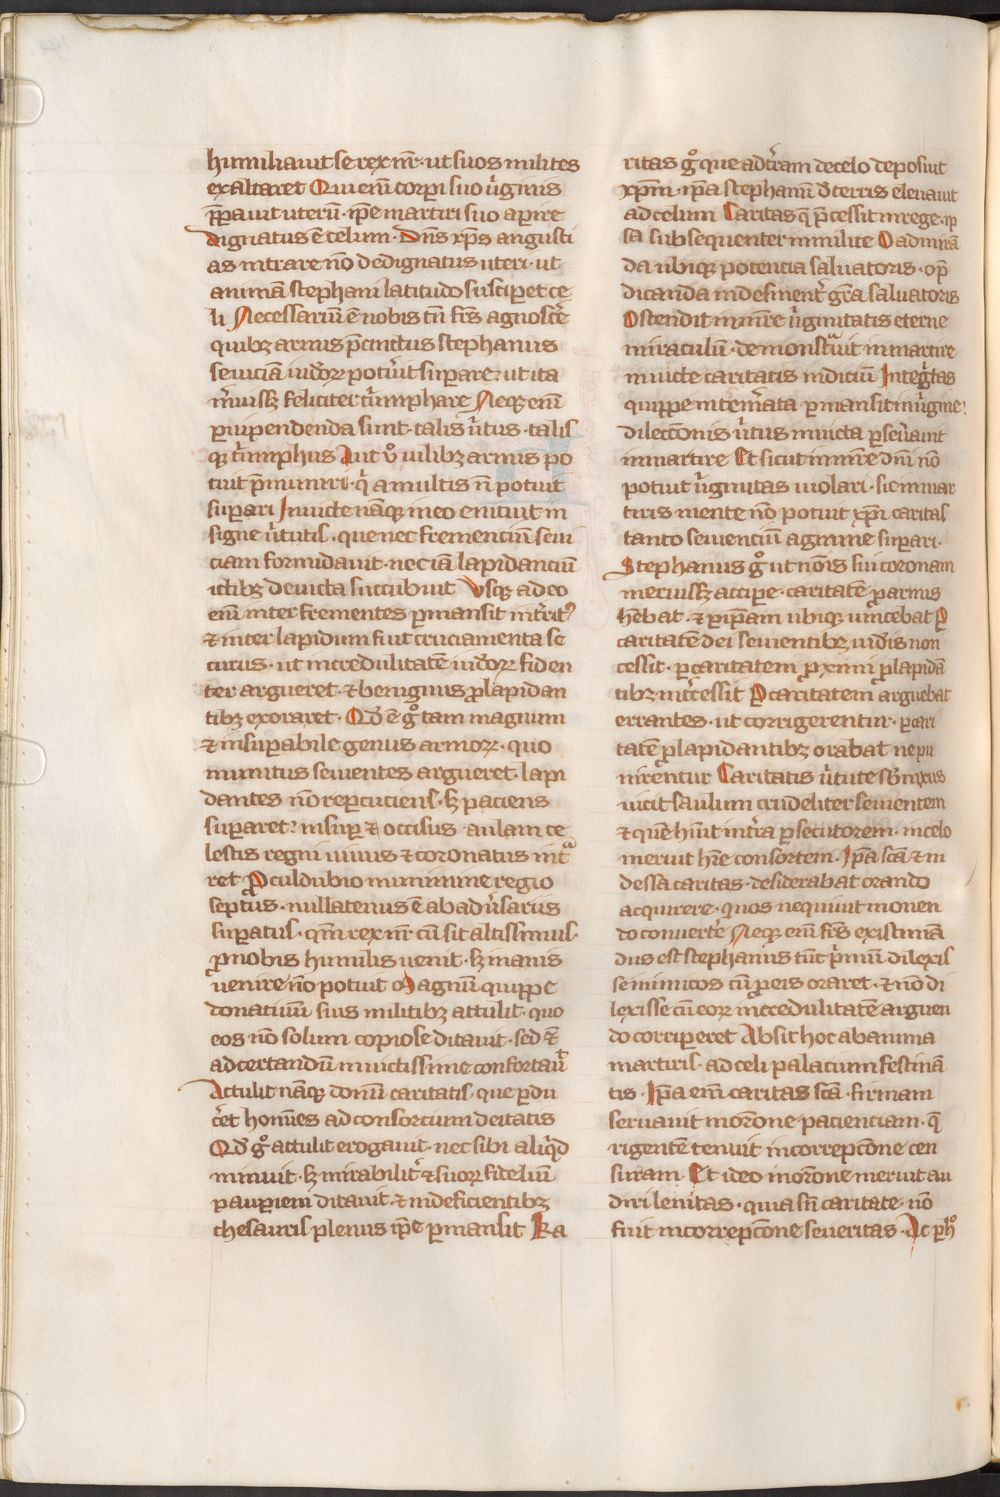 humiliauit se rex nr̄ · ut suos milites
exaltaret Qui eni̅ corpi suo uͥginis
p̄pauit uteru̅ · ip̅e martiri suo apire
dignatus e̅ celum · Dn̅s xp̅s angusti
as intrare no̅ dedignatus uteri · ut
anima̅ stephani latitudo susciperet ce
li Necessariu̅ e̅ nobis tn̅ frs̅ agnosce̅
quibꝫ armis p̄cinctus stephanus
seuicia̅ iudeoꝝ potuit supare · ut ita
meruissꝫ feliciter tͥumphare Neqꝫ eni̅
ꝑuipendenda sunt · talis uͥtus · talis
qꝫ tͥumphus Aut uͦ uilibꝫ armis po
tuit p̄muniri · qͥ a multis n̅ potuit
supari Inuicte na̅qꝫ in eo enituit in
signe uͥtutis · que nec frementiu̅ seui
ciam formidauit · nec ia̅ lapidanciu̅
ictibꝫ deuicta succubuit Vsqꝫ adeo
eni̅ inter frementes ꝑmansit int̅rit⁹
⁊ inter lapidum fuit cruciamenta se
curus · ut incredulitate̅ iudeoꝝ fiden
ter argueret · ⁊ benignus ꝓ lapidan
tibꝫ exoraret · Qd̅ e̅ gͦ tam magnum
⁊ insuꝑabile genus armoꝝ · quo
munitus seuientes argueret · lapi
dantes no̅ reꝑcuciens · sꝫ paciens
suꝑaret · insuꝑ ⁊ occisus aulam ce
lestis regni uiuus ⁊ coronatus intͣ
ret Proculdubio munimine regio
septus · nullatenus e̅ ab aduͥsariis
suꝑatus · qm̅ rex nr̄ cu̅ sit altissimus
ꝓ nobis humilis uenit · sꝫ inanis
uenire no̅ potuit Magnu̅ quippe
donatiuu̅ suis militibꝫ attulit · quo
eos no̅ solum copiose ditauit · sed ⁊
ad certandu̅ inuictissime confortauͥ
Attulit na̅qꝫ donu̅ caritatis · que ꝑdu
ce̅t homi̅es ad consorcium deitatis
Qd̅ gͦ attulit erogauit · nec sibi aliqͥd
minuit · sꝫ mirabilit̅ ⁊ suoꝝ fideliu̅
pauꝑiem ditauit · ⁊ indeficientibꝫ
thesauris plenus ip̅e ꝑmansit Ka
ritas gͦ que ad tͬram de celo deposuit
xp̅m · ip̅a stephanu̅ d̅ terris eleuauit
ad celum Caritas q̅ p̄cessit in rege · ip̅
sa subsequenter in milite O admira̅
da ubiqꝫ potencia saluatoris · o p̄
dicanda indesinent̅ gr̅a saluatoris
Ostendit in mr̅e uͥginitatis eterne
miraculu̅ · demonstͣuit in martire
inuicte caritatis indiciu̅ Integͥtas
quippe intem̅ata ꝑmansit in uͥgine ·
dilecc̅onis uͥtus inuicta ꝑseu̅auit
in martire Et sicut in mr̅e dn̅i no̅
potuit uͥginitas uiolari · sic in mar
tiris mente no̅ potuit xp̅i caritas
tanto seuienciu̅ agmine suꝑari ·
Stephanus gͦ ut nois̅ sui coronam
meruissꝫ acciꝑe · caritate̅ ꝑ armis
he̅bat · ⁊ ꝑ ip̅am ubiqꝫ uincebat Ꝑ
caritate̅ dei seuientibꝫ iud̅is non
cessit · ꝑ caritatem ꝓximi ꝓ lapida̅
tibꝫ int̅cessit Ꝑ caritatem arguebat
errantes · ut corrigerentur · ꝑ cari
tate̅ ꝓ lapidantibꝫ orabat ne pu
nirentur Caritatis uͥtute sb̅nixus
uicit saulum crudeliter seuientem
⁊ que̅ hi̅uit in tͬra ꝑsecutorem · in celo
meruit hr̅e consortem · Ip̅a sca̅ ⁊ in
dessa caritas · desiderabat orando
acquirere · quos nequiuit monen
do conuert̅e Neqꝫ eni̅ frs̅ existima̅
dus est stephanus tu̅c pͥmu̅ dilexis
se inimicos cu̅ ꝓ eis oraret · ⁊ no̅ di
lexisse cu̅ eoꝝ incredulitate̅ arguen
do corriperet Absit hoc ab anima
martiris · ad celi palacium festina̅
tis · Ip̅a eni̅ caritas sca̅ · firmam
seruauit in or̅one pacienciam · q̅
rigente̅ tenuit in correpc̅one cen
suram Et ideo in or̅one meruit au
diri lenitas · quia sn̅ caritate · no̅
fuit in correpc̅one seueritas · Ac ꝑ hͦ